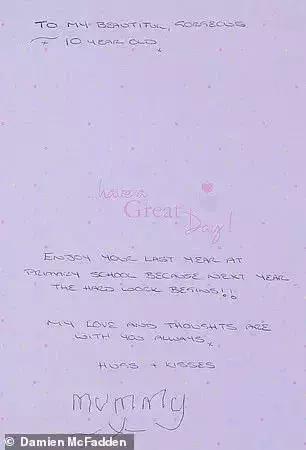 TO MY BEAUTIFUL, GORGEOUS
10 YEAR OLD,
have a
Great
Day!
ENJOY YOUR LAST YEAR AT
PRIMARY SCHOOL BECAUSE NEXT YEAR
THE HARD WORK BEGINS!!
MY LOVE AND THOUGHTS ARE
WITH YOU ALWAYS,
HUGS + KISSES
MUMMY
X
© Damien McFadden